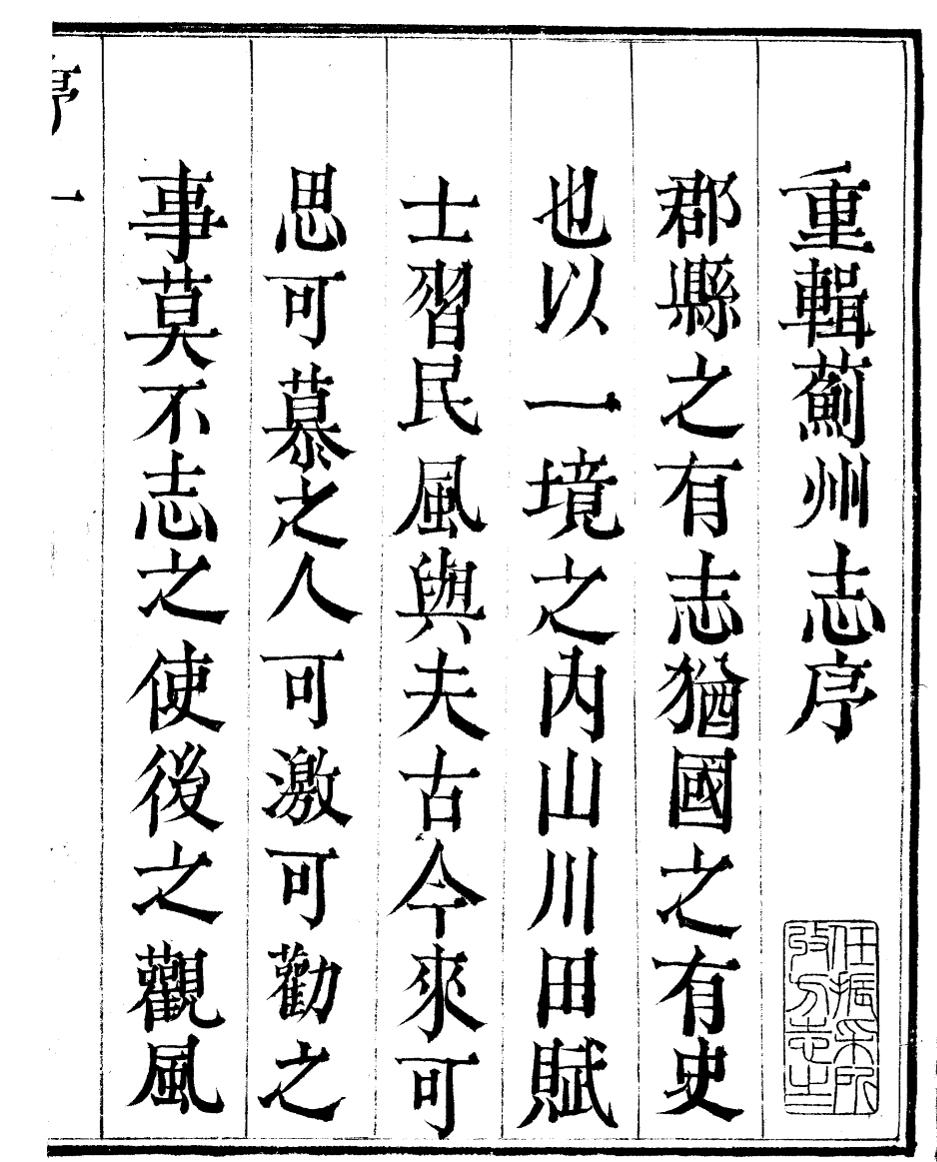 重輯薊州志序
郡縣之有志猶國之有史
也以一境之内山川田賦
士習民風與夫古今來可
思可慕之人可激可勸之
事莫不志之使後之觀風
序 一
任振采所
收方志之一